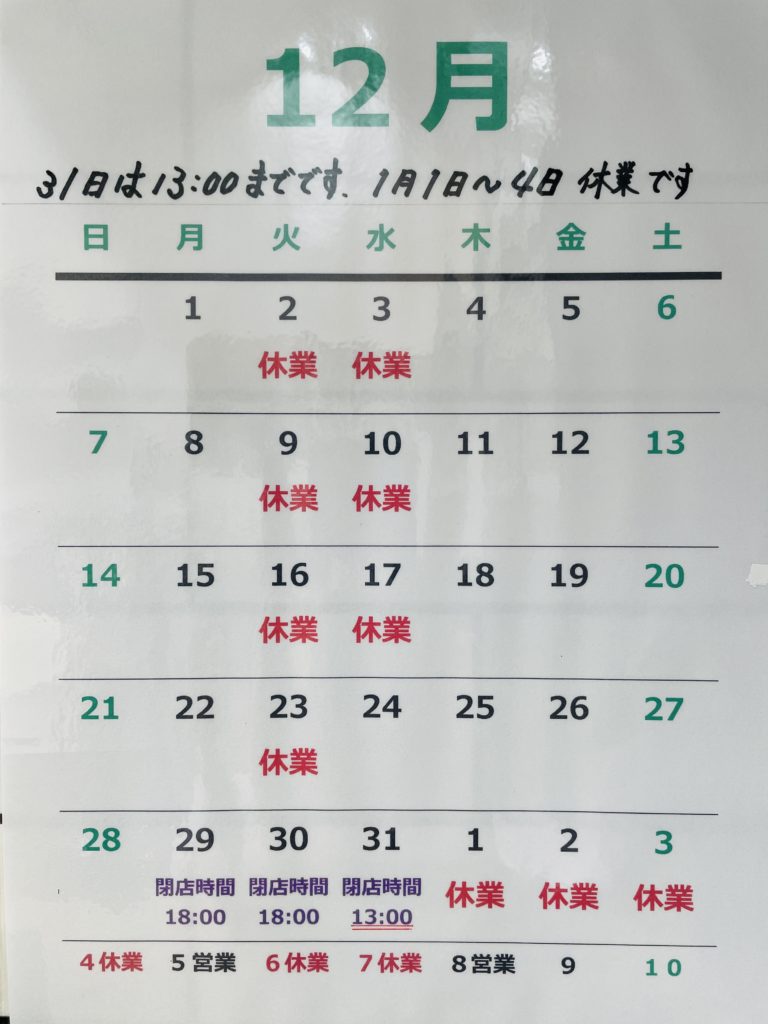 12月
31日は13:00までです、1月1日～4日 休業です
日 月 火 水 木 金 土
1 2 3 4 5 6
休業 休業
7 8 9 10 11 12 13
休業 休業
14 15 16 17 18 19 20
休業 休業
21 22 23 24 25 26 27
休業
28 29 30 31 1 2 3
閉店時間 閉店時間 閉店時間 休業 休業 休業
18:00 18:00 13:00
4休業 5営業 6休業 7休業 8営業 9 10